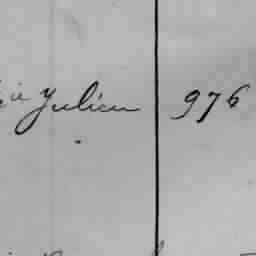 Julien 976